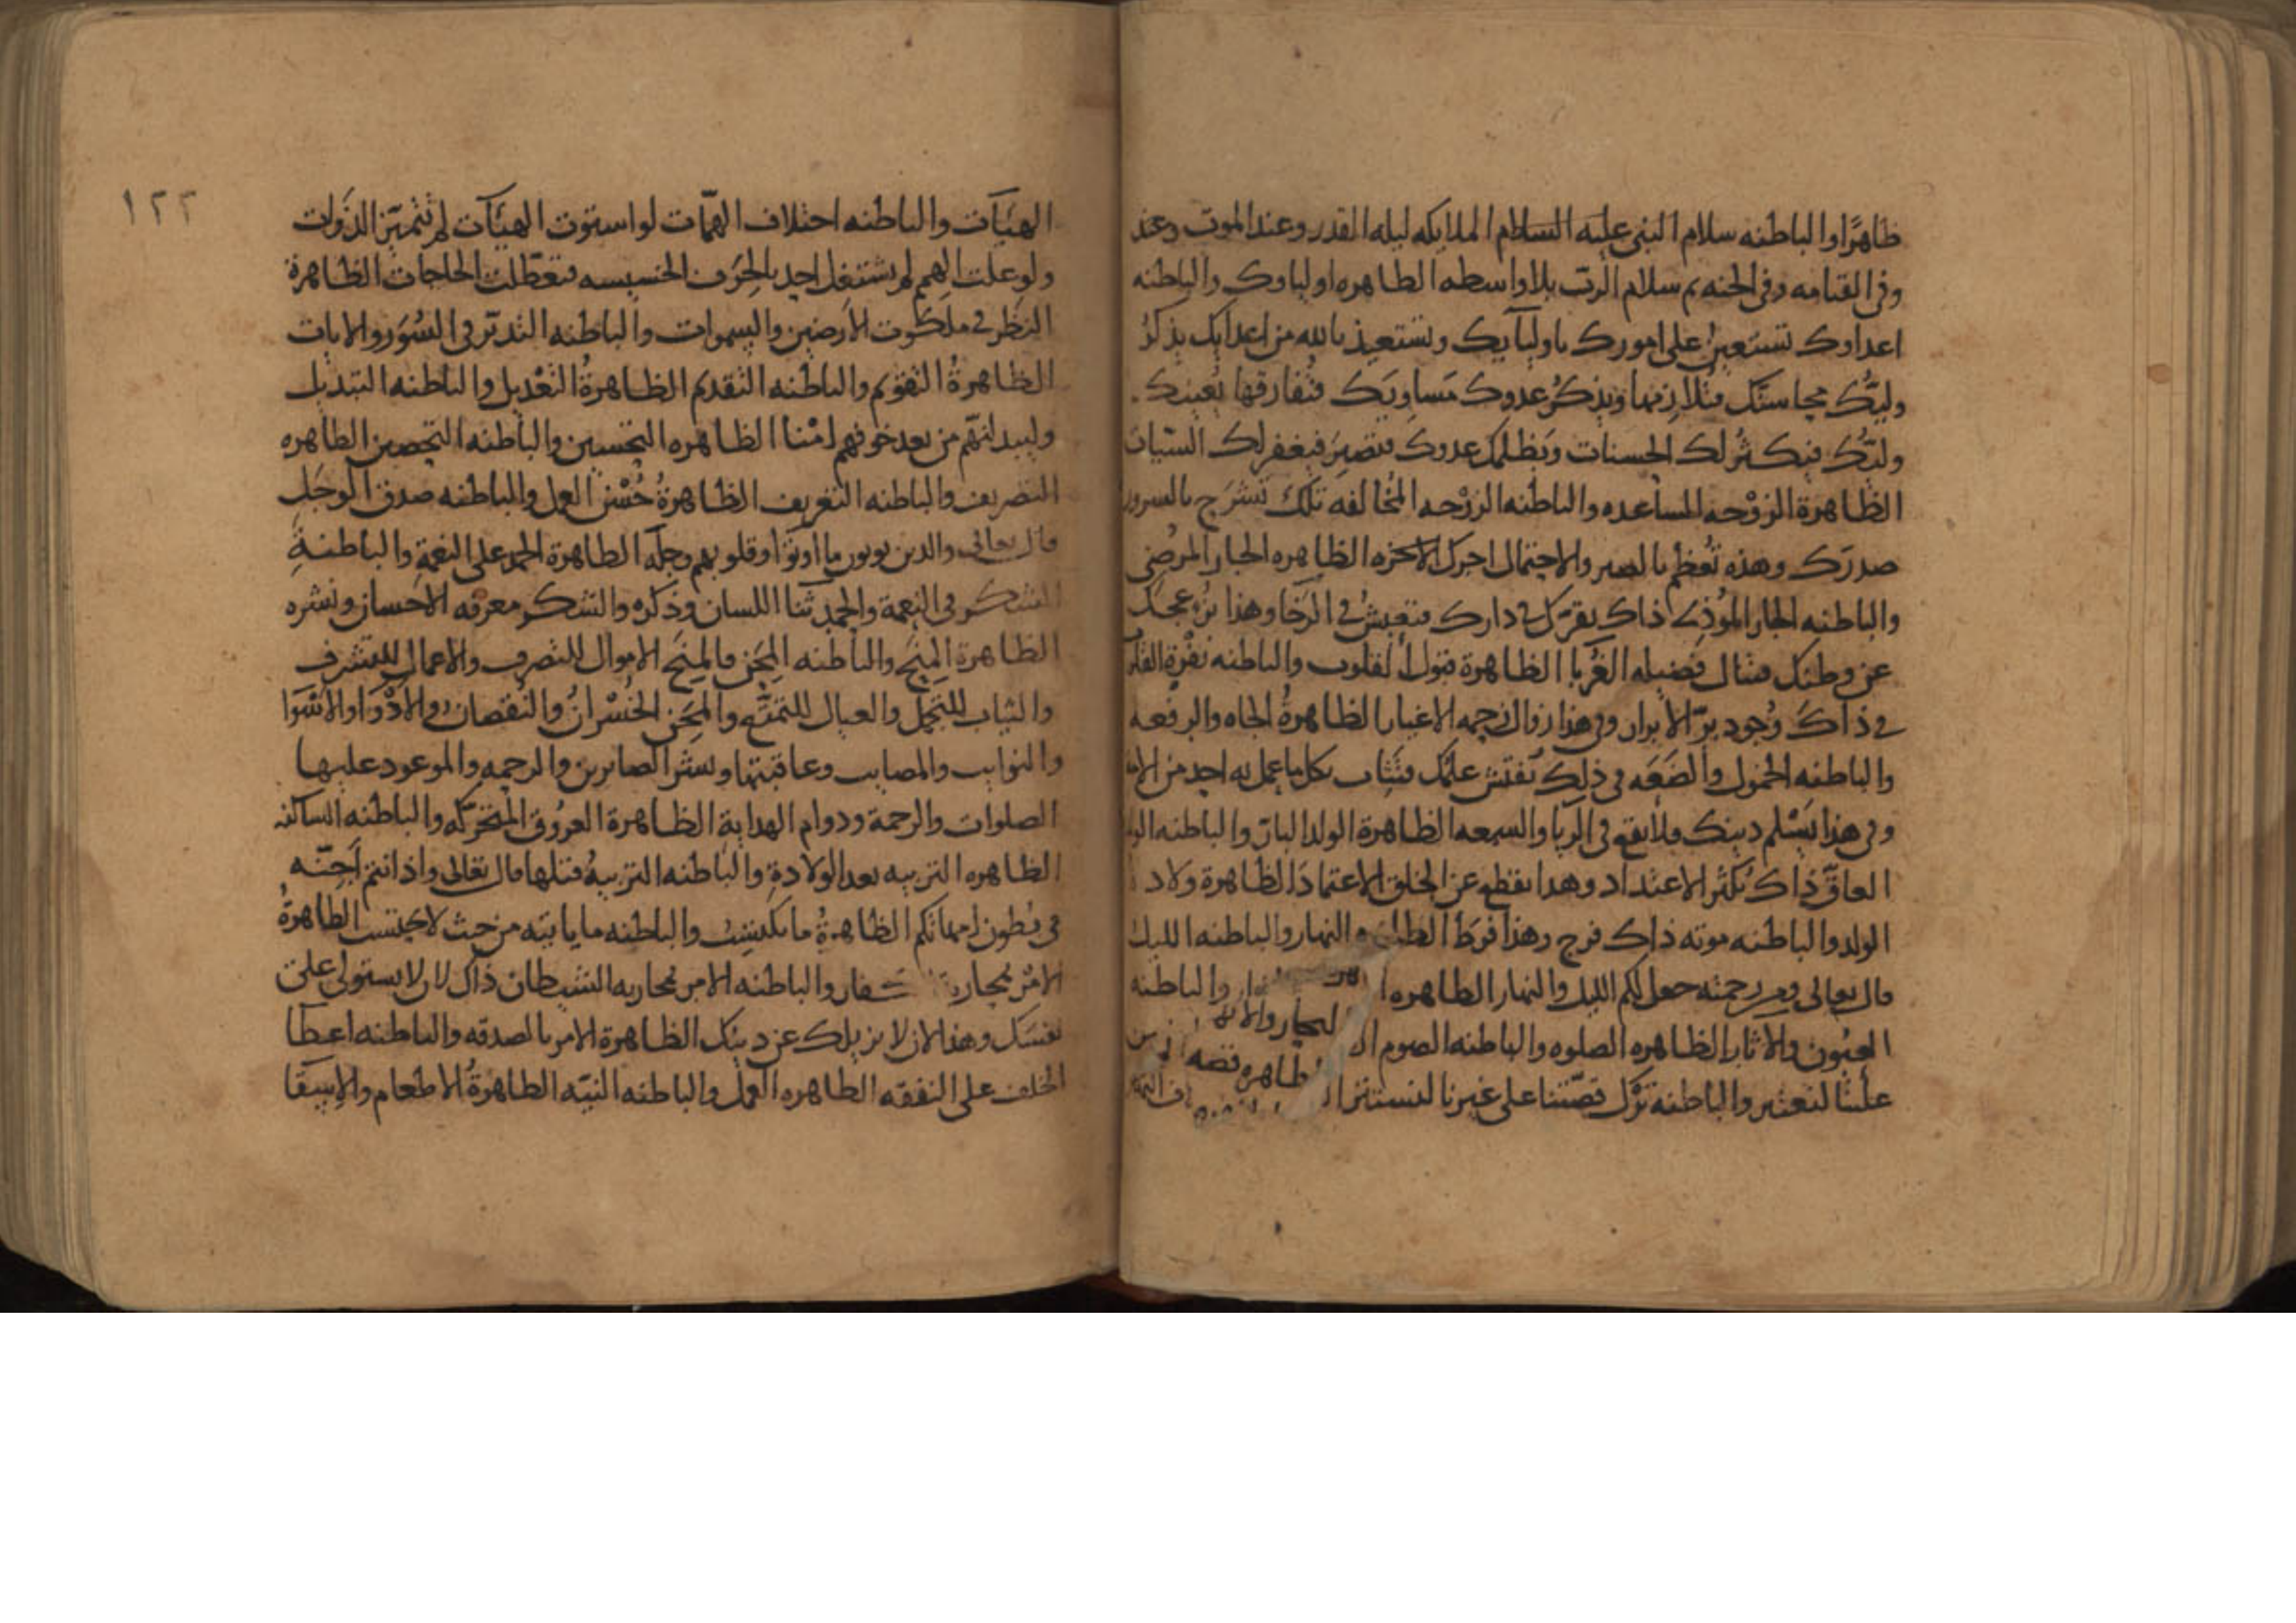 ظاهرًا والباطنه سلام النبي عليه السلام الملايكه ليله القدر وعند الموت وعند
وفي القيامه وفي الجنه ثم سلام الرب بلا واسطه الظاهره اولياوك والباطنه
اعداوك تستعين على امورك باوليآيك وتستعيذ بالله من اعدايك يذكر
وليّك محاسنك فتلازمها ويذكر عدوك مساويك فتفارقها يعينك
وليّك فيكثر لك الحسنات ويظلمك عدوك فتصبر فيغفر لك السيات
الظاهرة الزوْجه المساعده والباطنه الزوْجه المخالفه تلك تشرح بالسرور
صدرك وهذه تُعظم بالصبر والاحتمال اجرك الاخره الظاهره الجار المرضي
والباطنه الجار الموذي ذاك يقرّك في دارك فتعيش في الرخا وهذا يزعجك
عن وطنك فتنال فضيله الغربا الظاهرة قبول القلوب والباطنه نفرة القلوب
في ذاك وجود برّ الابرار وفي هذا زوال زحمه الاغيار الظاهرة الجاه والرفعه
والباطنه الخمول والضعه في ذلك تفتش علمك فتثاب بكل ما عمل به احد من
وفي هذا يسلم دينك فلا يقع في الريا والسمعه الظاهرة الولد البار والباطنه الولد
العاقّ ذاك يكثر الاعتداد وهذا يقطع عن الخلق الاعتماد الظاهرة ولاد
الولد والباطنه موته ذاك فرج وهذا فرط الظاهره النهار والباطنه الليل
قال تعالى ومن رحمته جعل لكم الليل والنهار الظاهره والباطنه
العيون والاثار الظاهره الصلوه والباطنه الصوم البحار
علينا لنعتبر والباطنه ترك قصّتنا على غيرنا لنستتر الظاهره قصه
١٢٢
الهيآت والباطنه اختلاف الهمّات لو استوت الهيآت لم تتميّز الذوات
ولو علت الهمم لم يشتغل احد بالحرف الخسيسه فتعطّلت الحاجات الظاهرة
النظر في ملكوت الارضين والسموات والباطنه التدبّر في السُوَر والايات
الظاهرةُ التقويم والباطنه التقديم الظاهرةُ التعْديل والباطنه التبديل
وليبدلنّهم من بعد خوفهم امْنا الظاهره التحسين والباطنه التحصين الظاهره
التصريف والباطنه التعريف الظاهرةُ حُسْن العمل والباطنه صدق الوجل
قال تعالى والدين يوتون ما اوتوْا وقلوبهم وجلة الظاهرة الحمد على النعمة والباطنة
الشكر في النعمة والحمد ثنا اللسان وذكره والشكر معرفه الاحسان ونشره
الظاهرة المِنَح والباطنه المِحَن فالمِنَح الاموال للتصرف والاعمال للتشرف
والثياب للتجمّل والعيال للتمتّع والمِحَن الخُسْرانُ والنُقصان والادْوَا والاسْوَا
والنوايب والمصايب وعاقبتها وبشّر الصابرين والرحمه والموعود عليها
الصلوات والرحمة ودوام الهداية الظاهرة العُروق المتحرّكه والباطنه الساكنه
الظاهره التربيه بعد الولادة والباطنه التربيهُ قبلها قال تعالى واذ انتم اجنّه
في بُطون امهاتكم الظاهرةُ ما يكتسب والباطنه ما ياتيه من حيث لا يحتسب الظاهرةُ
الامْر بمحاربة الكفار والباطنه الامر بمحاربه الشيطان ذاك لان لا يستولي على
نفسك وهذا لان لا يزيلك عن دينك الظاهرة الامر بالصدقه والباطنه اعطا
الخلف على النفقه الظاهره العمل والباطنه النيّه الظاهرةُ الاطعام والاِسقا